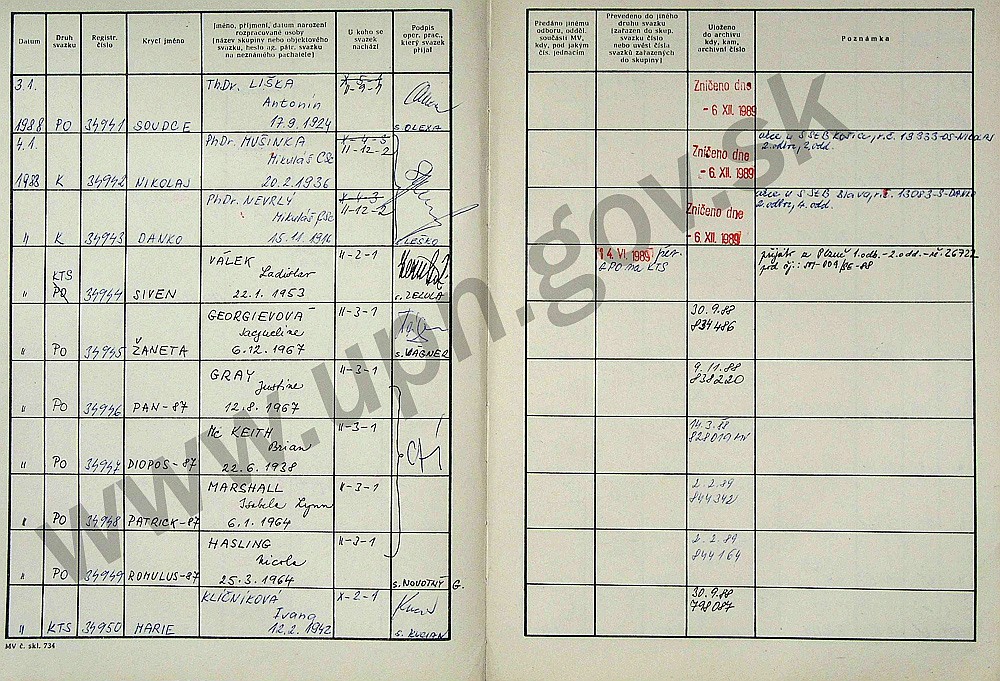 Datum
Druh svazku
Registr. číslo
Krycí jméno
Jméno, příjmení, datum narození rozpracované osoby (název skupiny nebo objektového svazku, heslo ag. pátr. svazku na neznámého pachatele)
U koho se svazek nachází
Podpis oper. prac., který svazek přijal
Předáno jinému odboru, odděl. součásti MV, kdy, pod jakým čís. jednacím
Převedeno do jiného druhu svazku (zařazen do skup. svazku číslo nebo uvést čísla svazků zařazených do skupiny)
Uloženo do archivu kdy, kam, archivní číslo
Poznámka
3.1. 1988 PO 34941 SOUDCE ThDr. LIŠKA Antonín 17.9.1924 X-5-1 II-3-1 s. OLEXA
Zničeno dne - 6. XII. 1989
4.1. 1988 K 34942 NIKOLAJ PhDr. MUŠINKA Mikuláš CSc 20.2.1936 X-4-3 II-12-2
Zničeno dne - 6. XII. 1989
2. odbor, 2. odd.
" K 34943 DANKO PhDr. NEVRLY Mikuláš CSc 15.11.1916 X-4-3 II-12-2 s. LEŠKO
Zničeno dne - 6. XII. 1989
2. odbor, 4. odd.
" KTS PO 34944 SIVEN VÁLEK Ladislav 22.1.1953 II-2-1 s. ZELULA
14. VI. 1989 per. z PO na KTS
přijato z Plzně 1. odb.-2. odd.-
" PO 34945 ŽANETA GEORGIEVOVÁ Jacqueline 6.12.1967 II-3-1 s. WAGNER
30.9.88 834486
" PO 34946 PAN-87 GRAY Justine 12.8.1967 II-3-1
9.11.88 838220
" PO 34947 DIOPOS-87 Mc KEITH Brian 22.6.1938 II-3-1
14.3.88 828019 MV
" PO 34948 PATRICK-87 MARSHALL Isabela Lynn 6.1.1964 II-3-1
2.2.89 844342
" PO 34949 ROMULUS-87 HASLING Nicola 25.3.1964 II-3-1 s. NOVOTNÝ G.
2.2.89 844164
" KTS 34950 MARIE KLIČNÍKOVÁ Ivana 12.2.1942 X-2-1 s. KUCIAN
30.9.88 798087
MV č. skl. 734
www.upn.gov.sk